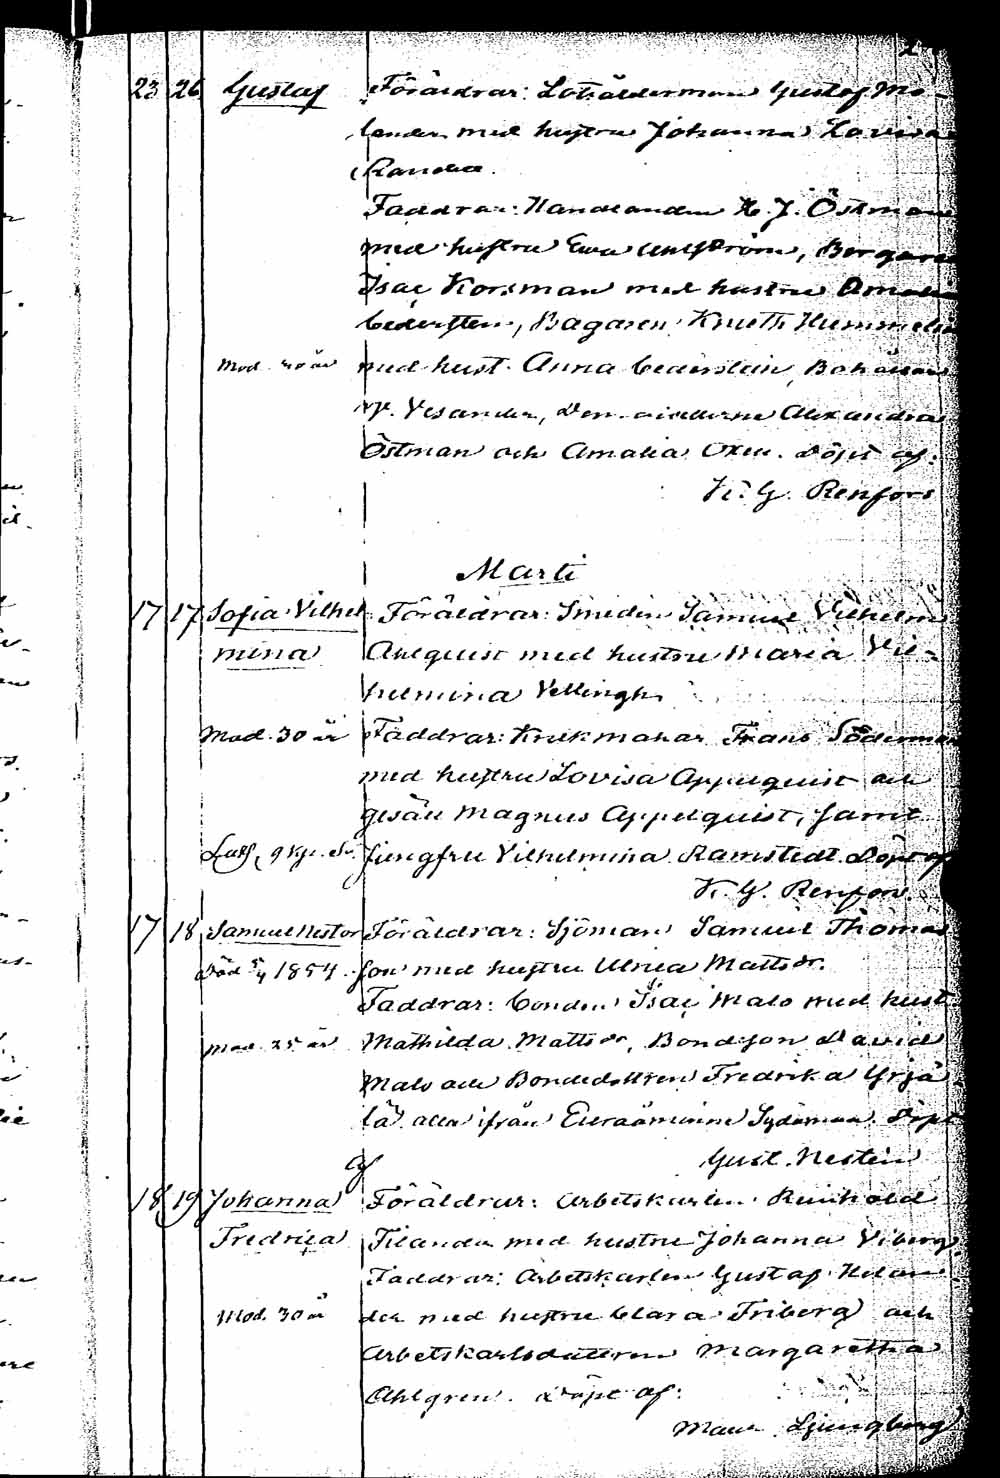 23 26 Gustaf Föräldrar: Lotsålderman Gustaf Me-
lander med hustru Johanna Lovisa
Randen.
Faddrar: Handlanden K. J. Östman
med hustru Eva, Borgaren
Isac Korsman med hustru Amalia
Cedersten, Bagaren Knuth Hummelin
Mod. år med hust. Anna Cederstein,
Vesander, Alexandra
Östman och Amalia Oxen. Döpt af:
K. G. Renfors
Marti
17 17 Sofia Vilhel Föräldrar: Smeden Samuel Vilhelm
mina Ahlquist med hustru Maria Vil-
helmina Vellingh
Mod. 30 år Faddrar: Krukmakar Frans Söderman
med hustru Lovisa Appelquist och
gesäll Magnus Appelquist, samt
Jungfru Vilhelmina Ramstedt. Döpt af
K. G. Renfors.
17 18 Samuel Nestor Föräldrar: Sjöman Samuel Thomas-
Död 5/4 1854. son med hustru Ulrica Mattsdr.
Faddrar: Bonden Isac Malo med hust.
Mod. 25 år Mathilda Mattsdr, Bondeson David
Malo och Bondedottren Fredrika Yrjä-
lä alla ifrån Euraåminne Socken. Döpt
af Gust. Nestein
18 19 Johanna Föräldrar: Arbetskarlen Reinhold
Fredrica Filander med hustru Johanna Viberg.
Faddrar: Arbetskarlen Gustaf Helan-
Mod. 30 år der med hustru Clara Friberg och
Arbetskarlsdottren Margaretha
Ahlgren. Döpt af:
Ljungberg